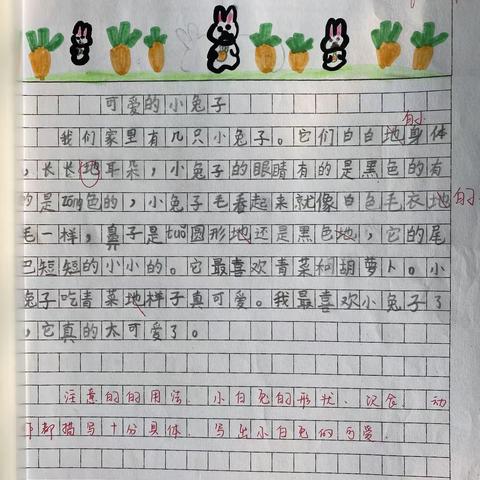 可爱的小兔子
我们家里有几只小兔子。它们白白地身体
的
，长长地耳朵，小兔子的眼睛有的是黑色的有
的是zōng色的，小兔子毛看起来就像白色毛衣地
的
毛一样，鼻子是tuǒ圆形地还是黑色地，它的尾
巴短短的小小的。它最喜欢青菜和胡萝卜。小
兔子吃青菜地样子真可爱。我最喜欢小兔子了
，它真的太可爱了。
注意的的用法. 小白兔的形状. 饮食. 动
作都描写十分具体. 写出小白兔的可爱.